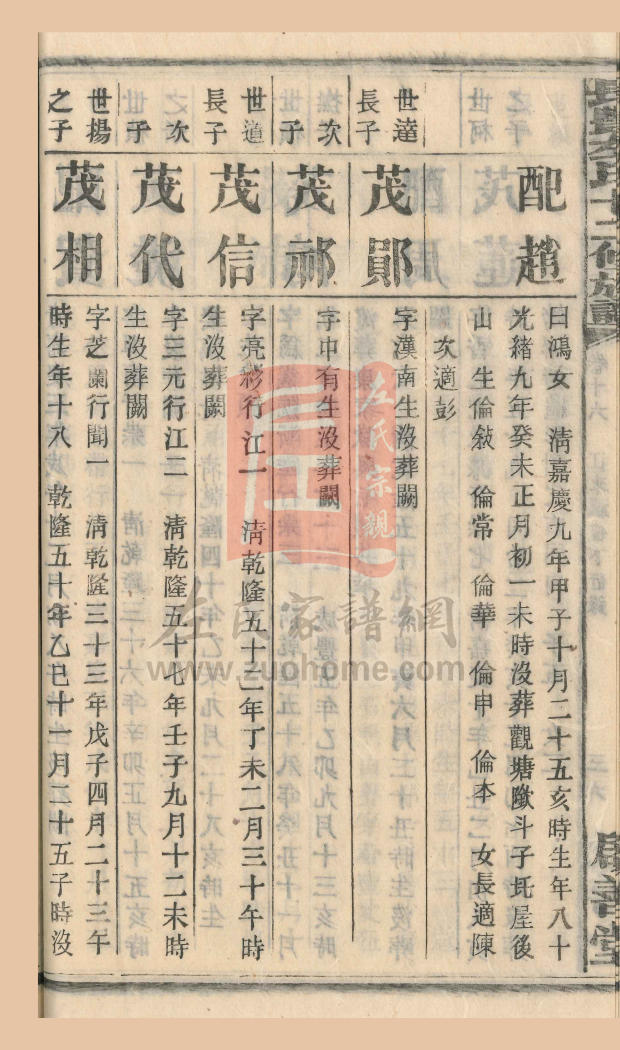 卷十六
三六
配趙
曰鴻女 清嘉慶九年甲子十月二十五亥時生年八十
光緒九年癸未正月初一未時沒葬觀塘墩斗子坑屋後
山 生倫敍 倫常 倫華 倫申 倫本 女長適陳
次適彭
世達
長子
茂鄖
字漢南生沒葬闕
次
子
茂祁
字中有生沒葬闕
世道
長子
茂信
字亮彩行江一 清乾隆五十二年丁未二月三十午時
生沒葬闕
次
子
茂代
字三元行江二 清乾隆五十七年壬子九月十二未時
生沒葬闕
世揚
之子
茂相
字芝蘭行聞一 清乾隆三十三年戊子四月二十三午
時生年十八 乾隆五十年乙巳十一月二十五子時沒
左氏宗親
左氏家譜網
www.zuohome.com